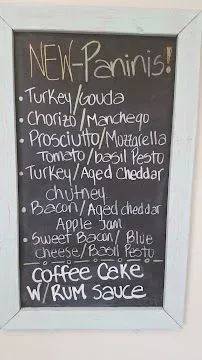 NEW-Paninis!
• Turkey/Gouda
• Chorizo/Manchego
• Prosciutto/Mozzarella
Tomato/basil Pesto
• Turkey/Aged Cheddar
chutney
• Bacon/Aged cheddar
Apple Jam
• Sweet Bacon/Blue
cheese/Basil Pesto
Coffee Cake
W/RUM SAUCE